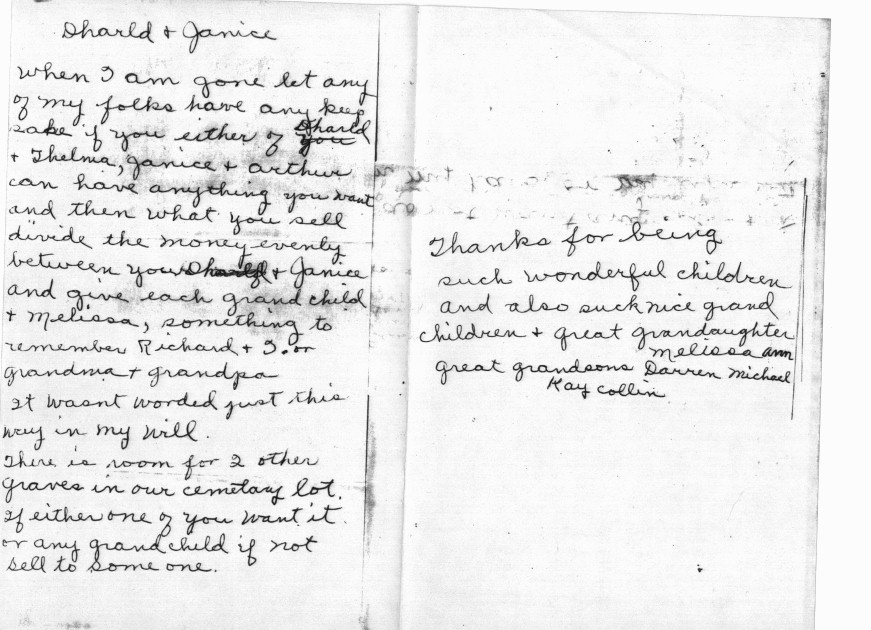 Dharld + Janice
When I am gone let any
of my folks have any keep
sake if you either of Dharld
you
+ Thelma, Janice + arthur
can have anything you want
and then what you sell
divide the money evenly
between you Dharld + Janice
and give each grand child
+ Melissa, something to
remember Richard + I. or
grandma + grandpa
It wasnt worded just this
way in my will.
There is room for 2 other
graves in our cemetary lot.
If either one of you want it.
or any grand child if not
sell to some one.
Thanks for being
such wonderful children
and also such nice grand
children + great grandaughter
Melissa ann
great grandsons Darren Michael
Kay Collin